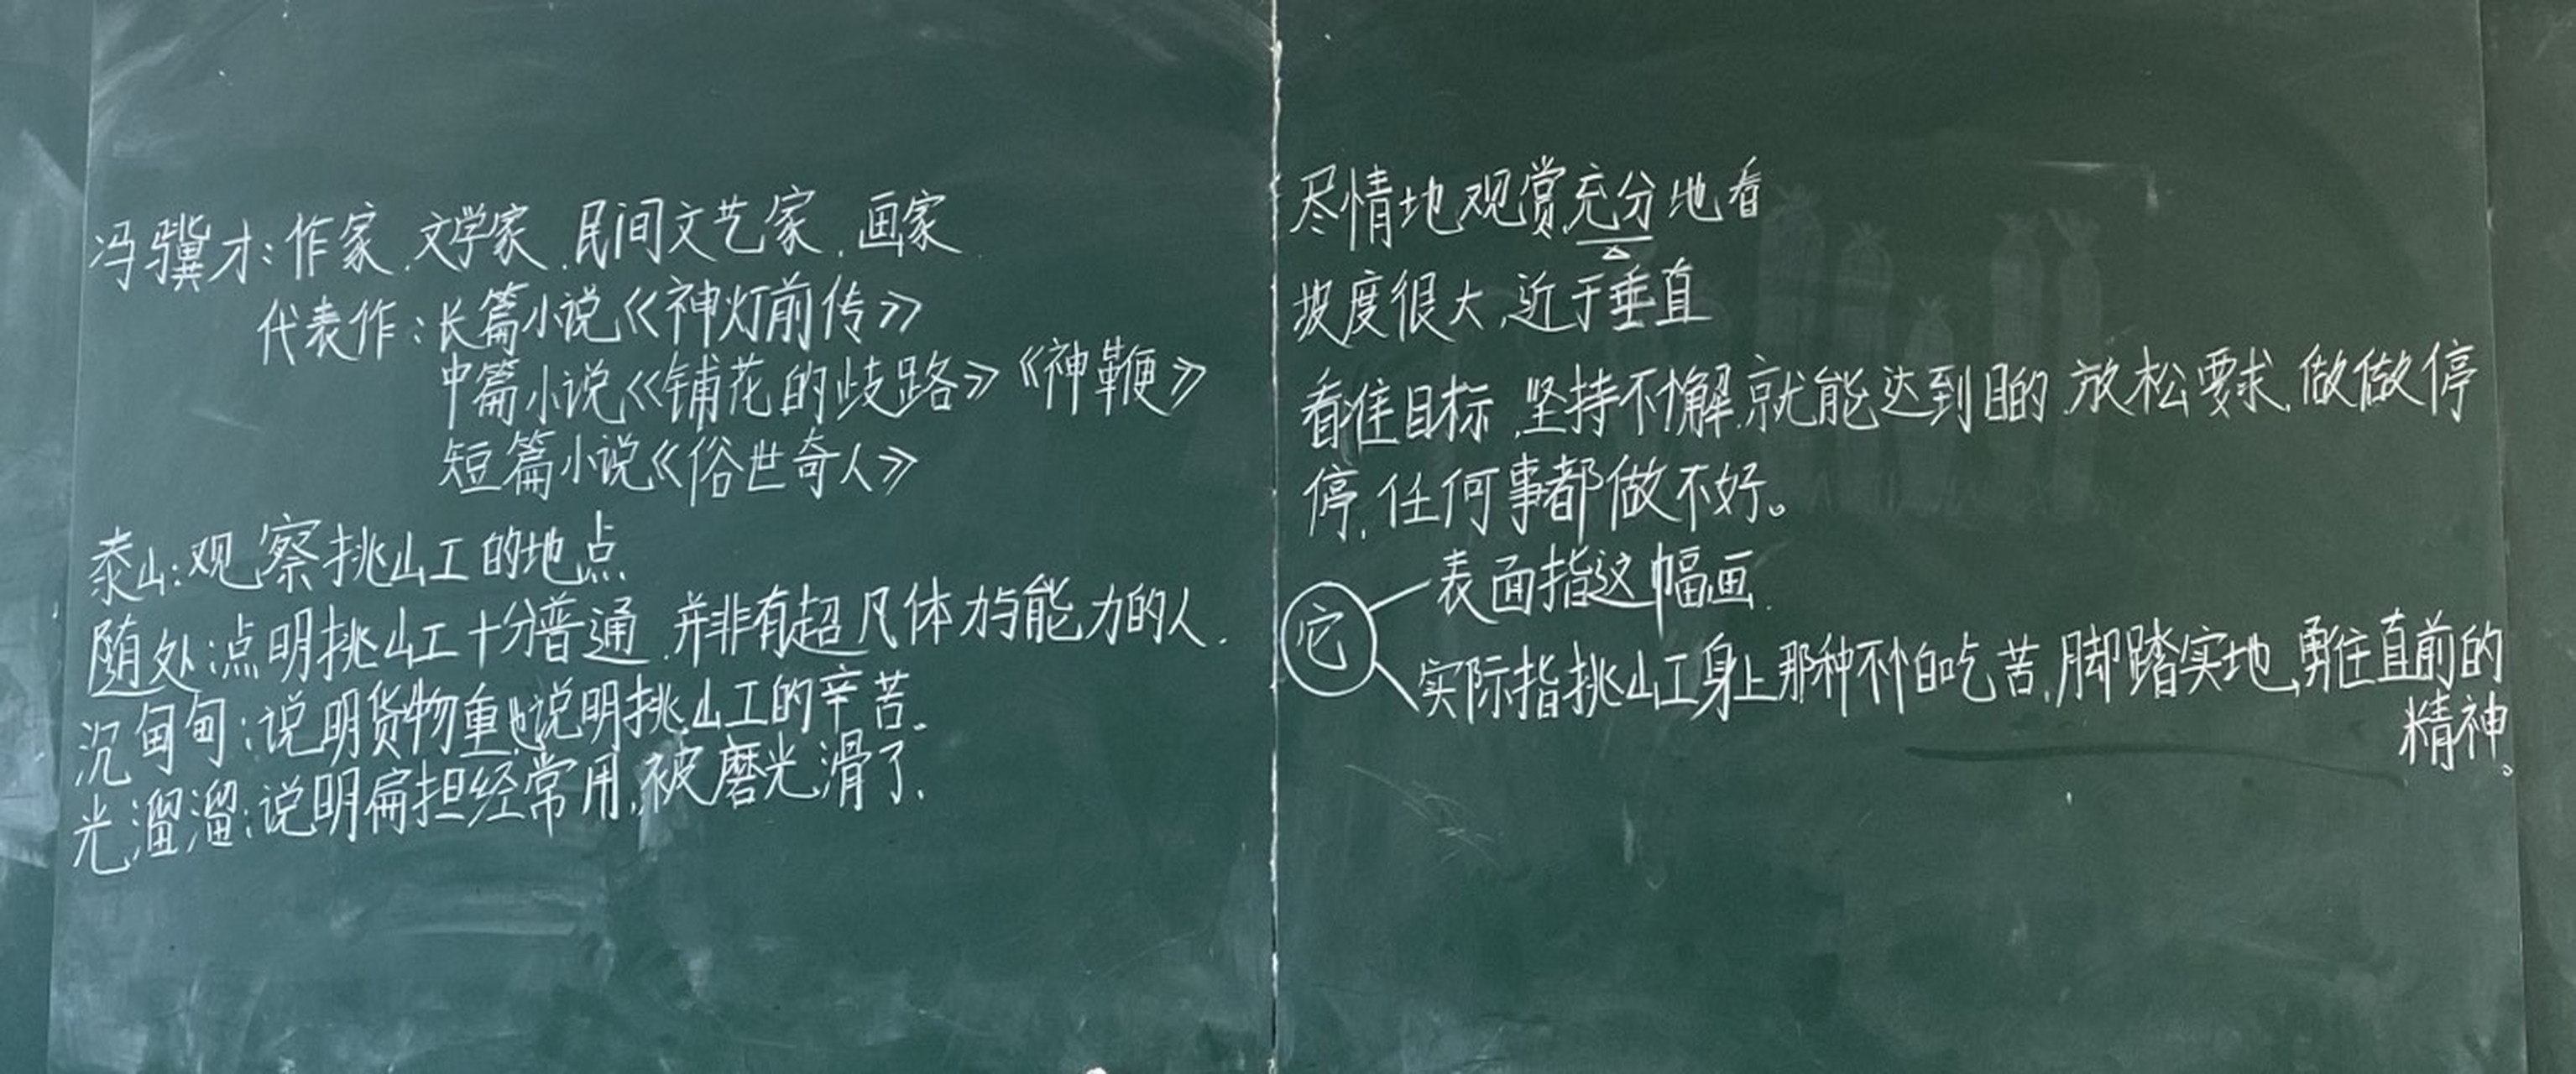 冯骥才:作家、文学家、民间文艺家、画家
代表作:长篇小说《神灯前传》
中篇小说《铺花的歧路》《神鞭》
短篇小说《俗世奇人》
泰山:观察挑山工的地点
随处:点明挑山工十分普通,并非有超凡体力与能力的人.
沉甸甸:说明货物重,也说明挑山工的辛苦。
光溜溜:说明扁担经常用,被磨光滑了.
尽情地观赏,充分地看
坡度很大,近于垂直
看准目标,坚持不懈,就能达到目的,放松要求,做做停
停,任何事都做不好。
它
表面指这幅画.
实际指挑山工身上那种不怕吃苦,脚踏实地,勇往直前的
精神。